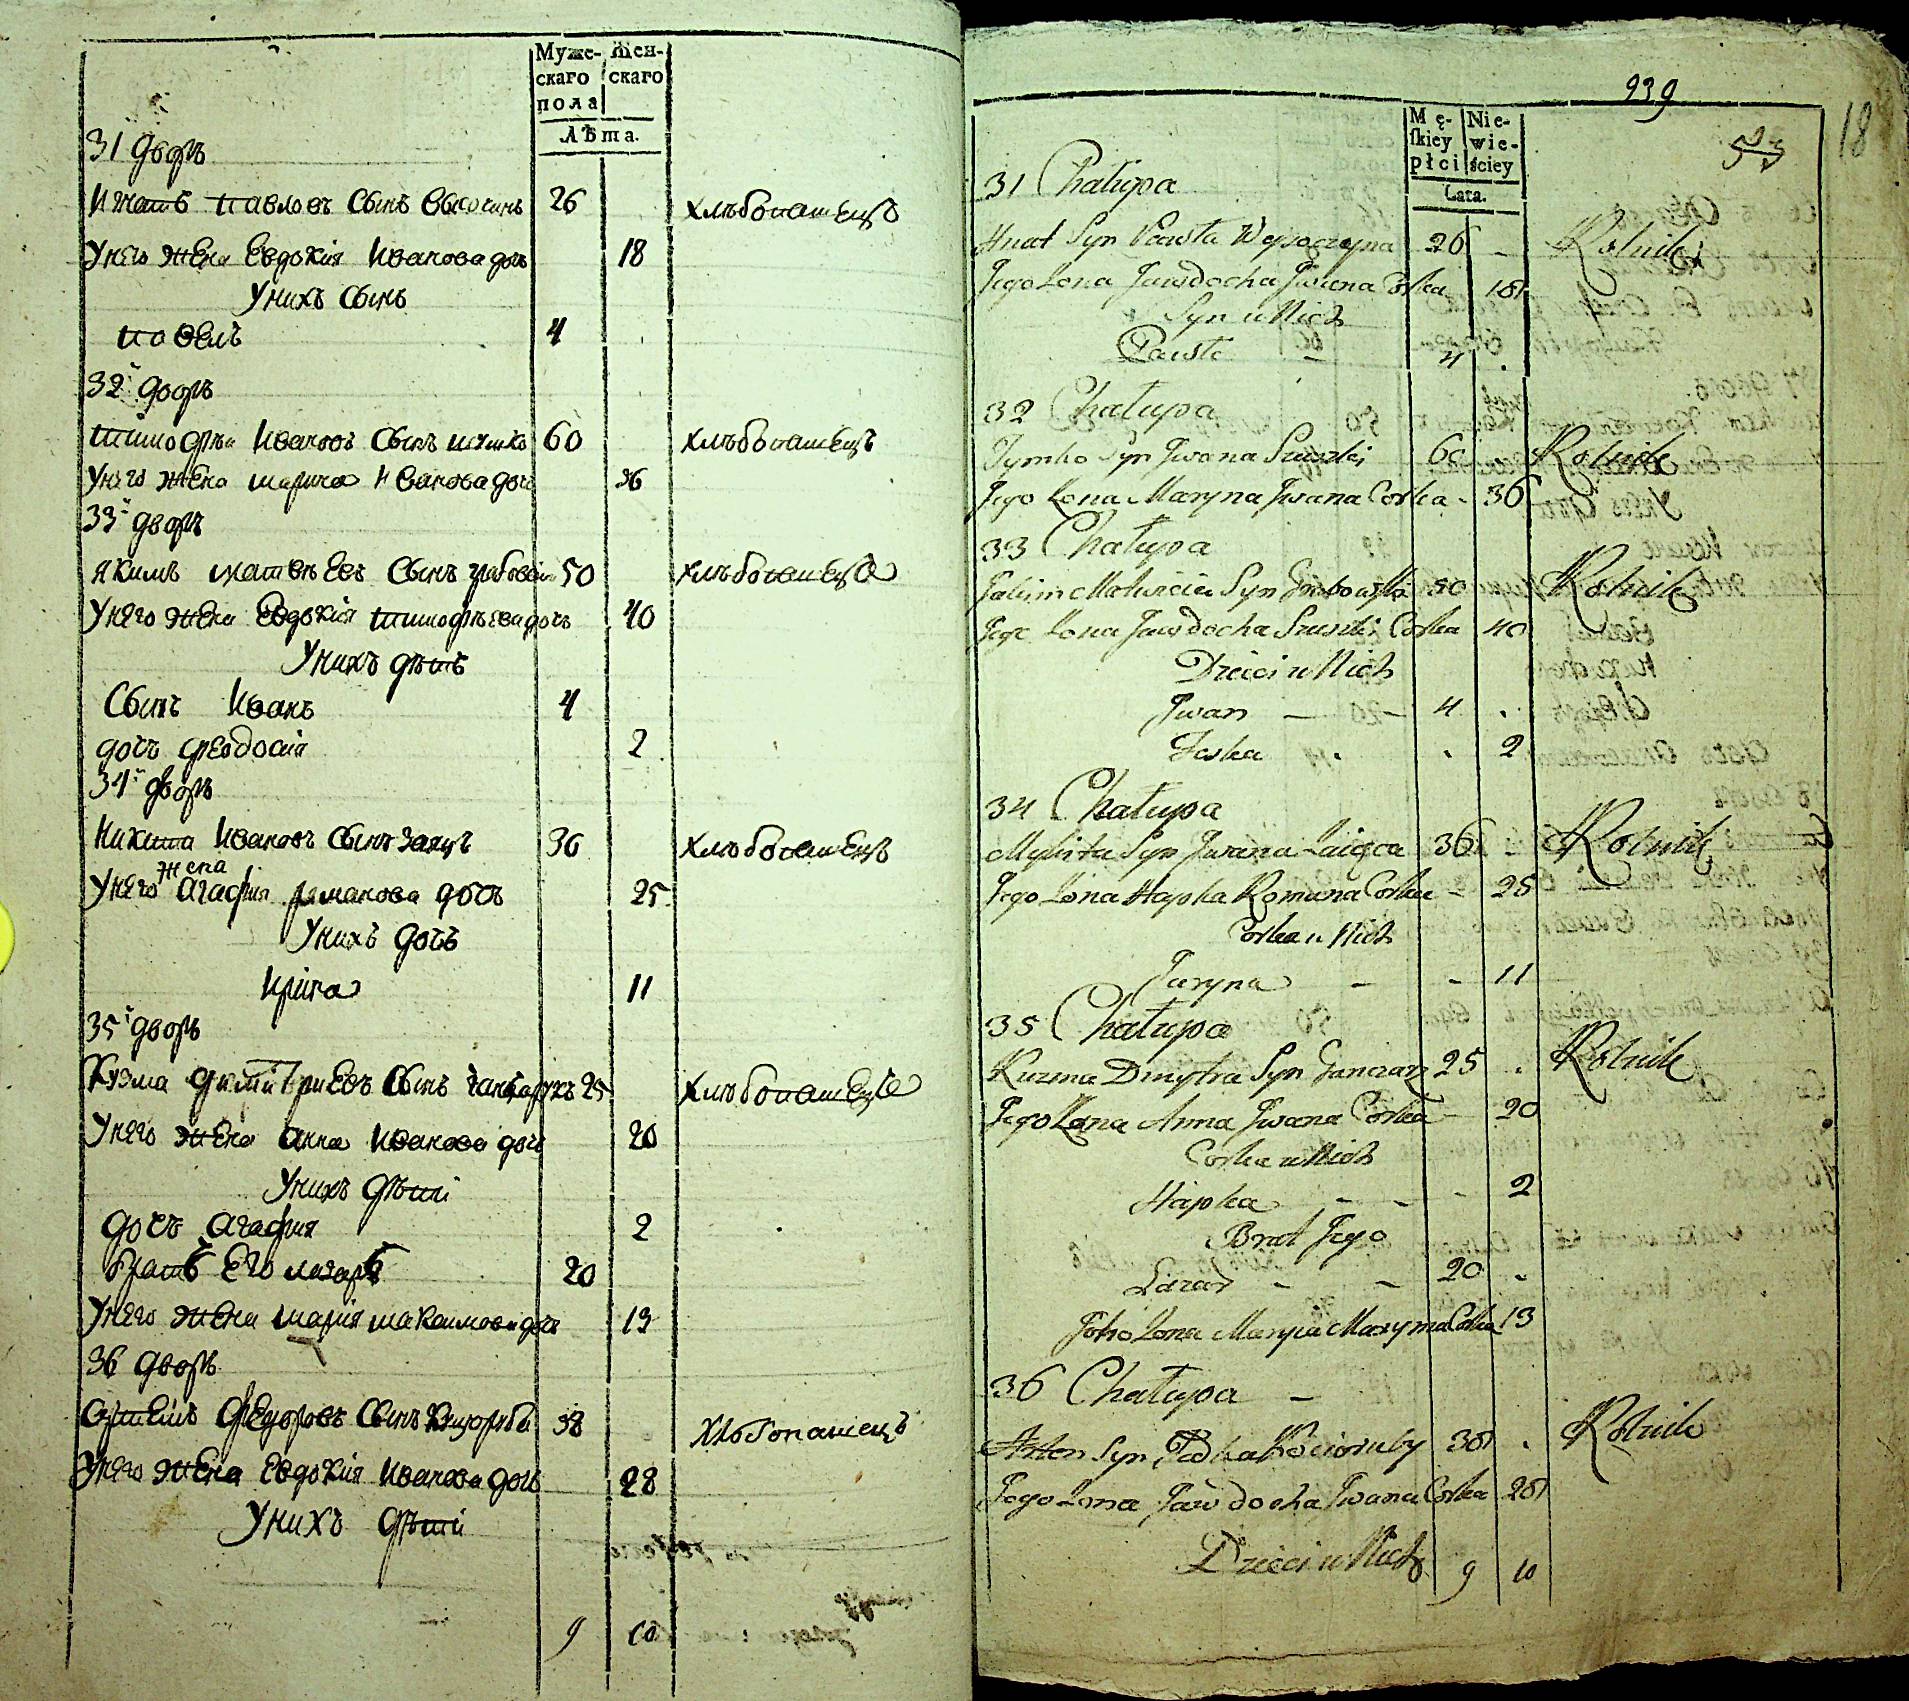 Муже- Жен-
скаго скаго
пола
Лѣта.
31 дворъ
Игнатъ Павловъ сынъ 26 хлѣбопашецъ
У него жена Евдокія Иванова дочь 18
У нихъ сынъ
Павелъ 4
32й дворъ
Тимофѣй Ивановъ сынъ 60 хлѣбопашецъ
У него жена Марина Иванова дочь 36
33й дворъ
Якимъ Матвѣевъ сынъ 50 хлѣбопашецъ
У него жена Евдокія Тимофѣева дочь 40
У нихъ дѣти
Сынъ Иванъ 4
дочь Феодосія 2
34й дворъ
Никита Ивановъ сынъ Заяцъ 36 хлѣбопашецъ
У него жена Агафія Романова дочь 25
У нихъ дочь
Ирина 11
35й дворъ
Кузма Димитриевъ сынъ 25 хлѣбопашецъ
У него жена Анна Иванова дочь 20
У нихъ дѣти
дочь Агафия 2
братъ Его Лазаръ 20
У него жена Мария Максимова дочь 13
36 дворъ
Артемъ Федоровъ сынъ 38 хлѣбопашецъ
У него жена Евдокия Иванова дочь 28
У нихъ дѣти
9 10
939
18
Mę- Nie-
skiey wie-
płci ściey
Lata.
31 Chałupa
Hnat Syn Pawła 26 - Rolnik
Jego Zona Jawdocha Jwana Corka 18
Syn u Nich
Pawło - 4 .
32 Chałupa
Tymko Syn Jwana Szuszki 60 . Rolnik
Jego Zona Maryna Jwana Corka - 36
33 Chałupa
Jakim Matwieia Syn Grabowski 50 Rolnik
Jego Zona Jawdocha Szuszki Corka 40
Dzieci u Nich
Jwan - 4 .
Feska . . 2
34 Chałupa
Mykita Syn Jwana Zaiąca 36 - Rolnik
Jego Zona Hapka Romana Corka - 25
Corka u Nich
Jaryna - - 11
35 Chałupa
Kuzma Dmytra Syn Ganczarz 25 . Rolnik
Jego Zona Anna Jwana Corka - 20
Corka u Nich
Hapka - - - 2
Brat Jego
Lazar - - 20 .
Joho Zona Marya Maxyma Corka 13
36 Chałupa -
Artem Syn Fedka Kocioruby 38 . Rolnik
Jego Zona Jawdocha Jwana Corka 28
Dzieci u Nich 9 10